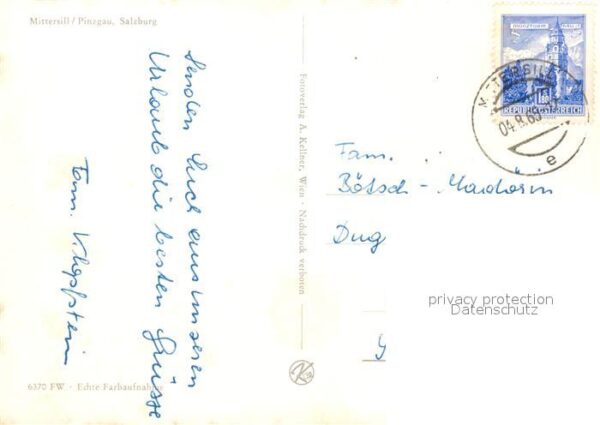 Mittersill / Pinzgau, Salzburg
Senden Euch aus unserem
Urlaub die besten Grüsse
Fam. Klopfstein
6370 FW · Echte Farbaufnahme
Fotoverlag A. Kellner, Wien · Nachdruck verboten
REPUBLIK ÖSTERREICH
MITTERSILL
e
Fam.
Bötsch - Madorin
privacy protection
Datenschutz